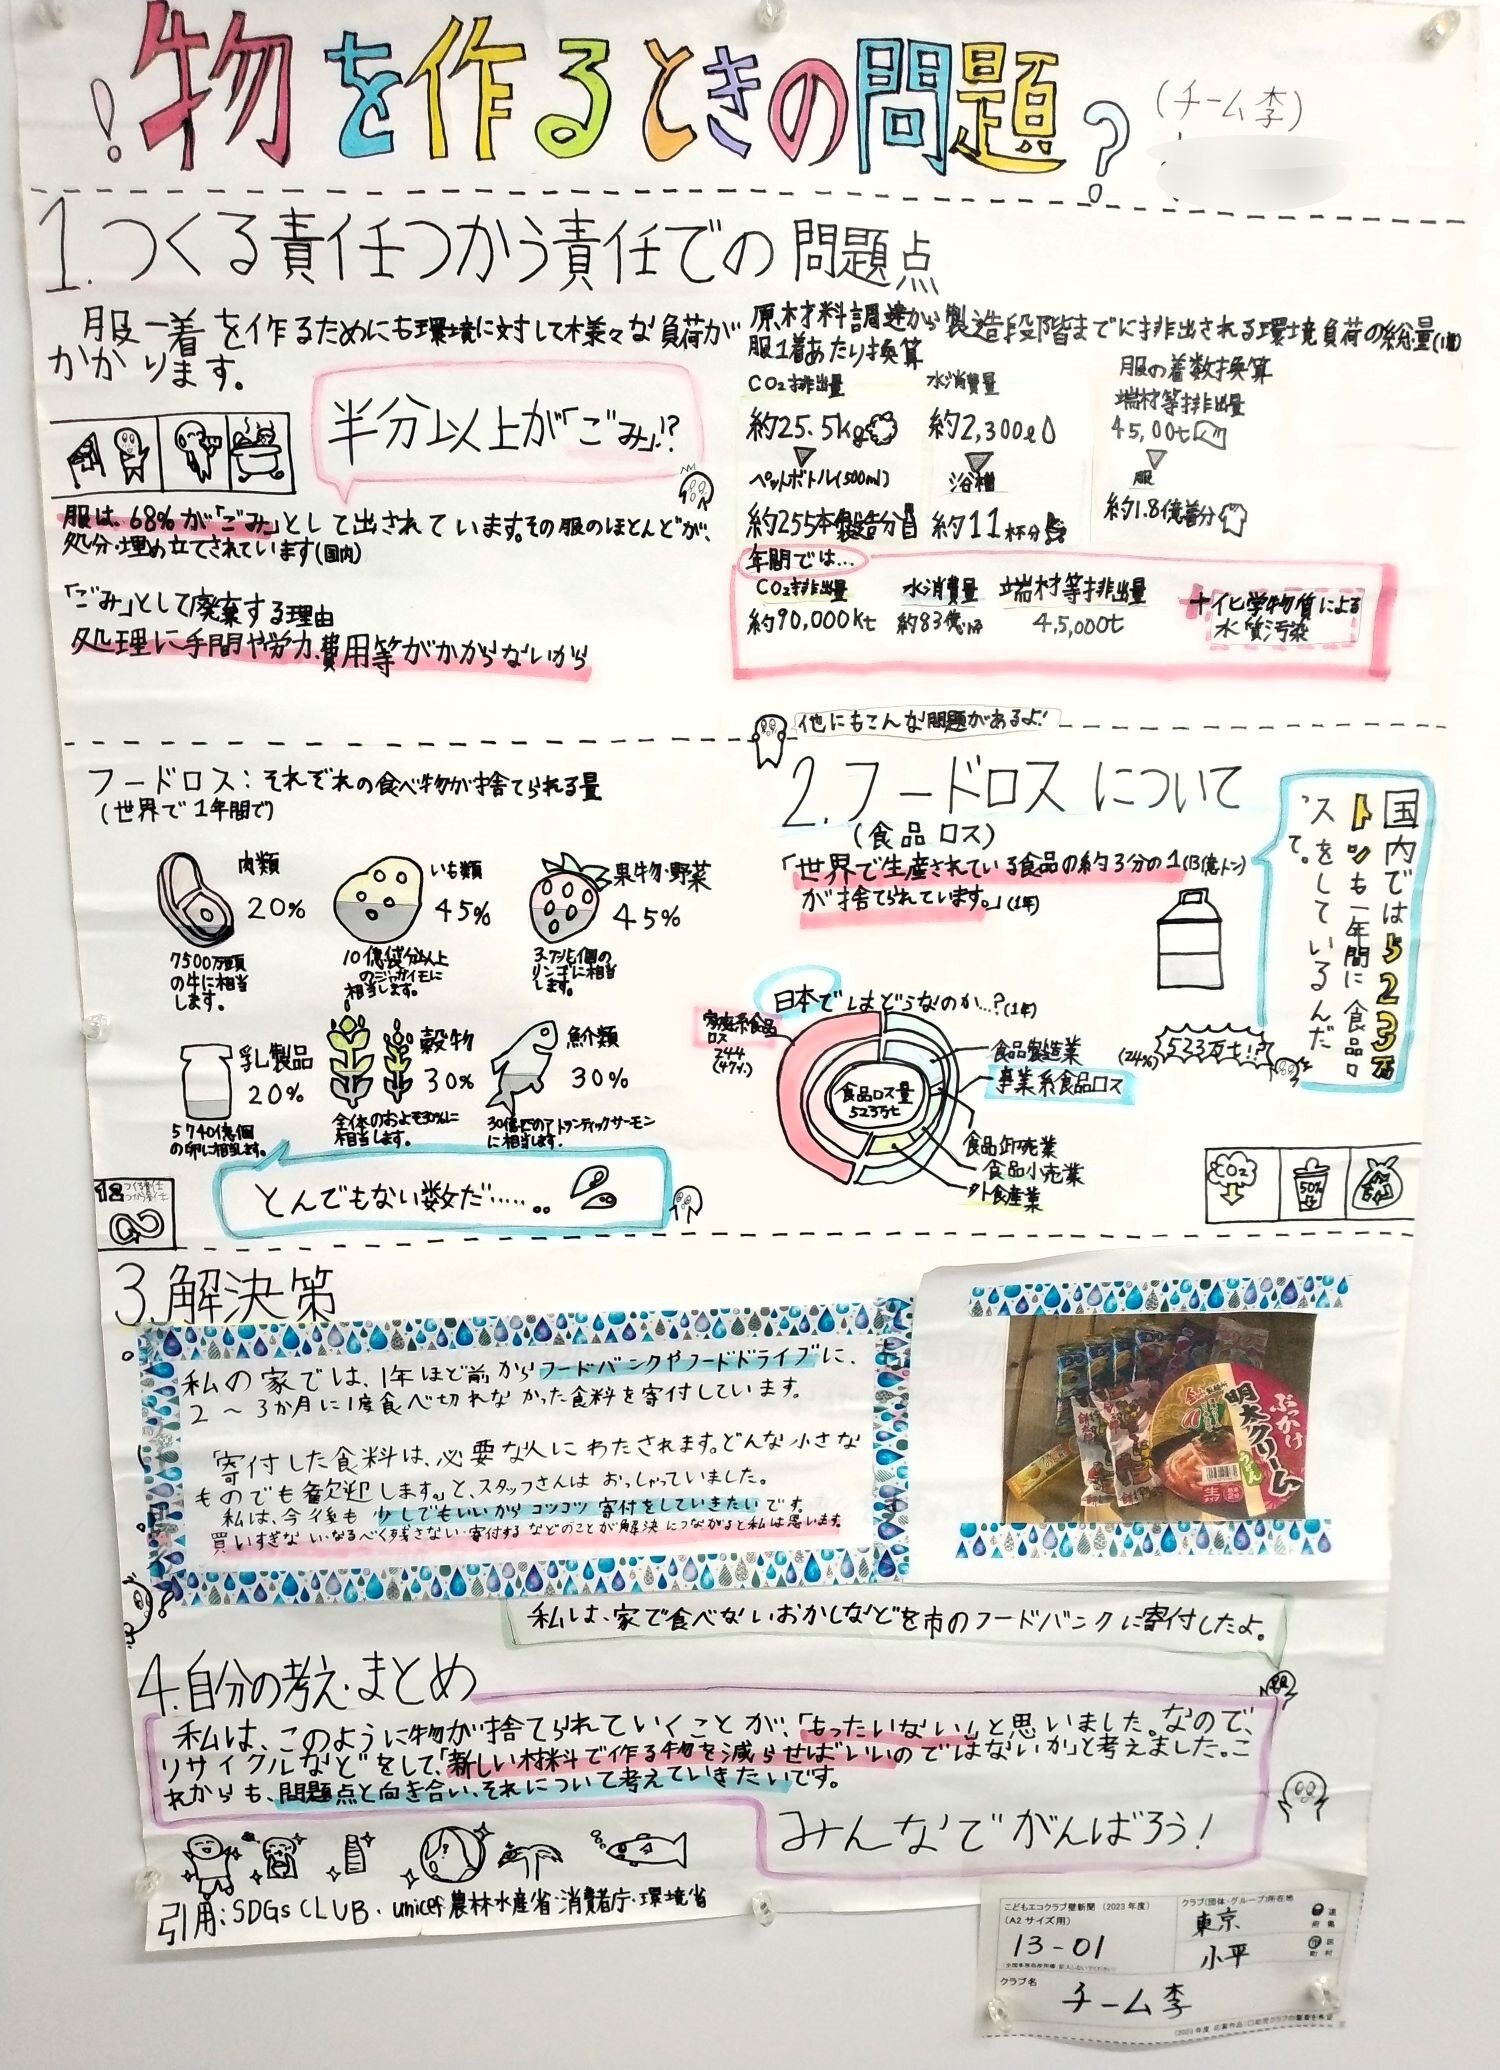 ！物を作るときの問題？
(チーム 李)
1.つくる責任つかう責任での問題点
服一着を作るためにも環境に対して様々な負荷が
かかります。
半分以上が「ごみ」!?
服は、68%が「ごみ」として出されています。その服のほとんどが、
処分・埋め立てされています(国内)
「ごみ」として廃棄する理由
処理に手間や労力、費用等がかからないから
原材料調達から製造段階までに排出される環境負荷の総量
服1着あたり換算
CO₂排出量
約25.5kg
ペットボトル(500ml)
約255本製造分
水消費量
約2,300ℓ
浴槽
約11杯分
服の着数換算
端材等排出量
45,00t
服
約1.8億着分
年間では…
CO₂排出量
約90,000kt
水消費量
約83億㎥
端材等排出量
45,000t
+化学物質による
水質汚染
他にもこんな問題があるよ！
フードロス：それぞれの食べ物が捨てられる量
(世界で1年間で)
肉類
20%
7500万頭
の牛に相当
します。
いも類
45%
10億袋分以上
のジャガイモに
相当します。
果物・野菜
45%
3.7兆個の
リンゴに相当
します。
乳製品
20%
5740億個
の卵に相当します。
穀物
30%
全体のおよそ30%に
相当します。
魚介類
30%
30億匹のアトランティックサーモン
に相当します。
とんでもない数だ……..
12 つくる責任
つかう責任
2.フードロスについて
(食品ロス)
「世界で生産されている食品の約3分の1(13億トン)
が捨てられています。」(1年)
国内では523万
トンも一年間に食品ロ
スをしているんだ
って。
日本ではどうなのか…?(1年)
家庭系食品
ロス
244
(47%)
食品ロス量
523万t
食品製造業
事業系食品ロス
食品卸売業
食品小売業
外食産業
(24%)
523万t!?
CO₂
50%
3.解決策
私の家では、1年ほど前からフードバンクやフードドライブに、
2〜3か月に1度食べ切れなかった食料を寄付しています。
「寄付した食料は、必要な人にわたされます。どんな小さな
ものでも歓迎します。」と、スタッフさんはおっしゃっていました。
私は、今後も少しでもいいからコツコツ寄付をしていきたいです。
買いすぎない・なるべく残さない・寄付するなどのことが解決につながると私は思います。
ぶっかけ
明太クリーム
うどん
生
私は、家で食べないおかしなどを市のフードバンクに寄付したよ。
4.自分の考え・まとめ
私は、このように物が捨てられていくことが、「もったいない」と思いました。なので、
リサイクルなどをして、「新しい材料で作る物を減らせばいいのではないか」と考えました。こ
れからも、問題点と向き合い、それについて考えていきたいです。
みんなでがんばろう！
引用：SDGs CLUB・unicef・農林水産省・消費者庁・環境省
こどもエコクラブ壁新聞 (2023年度)
(A2サイズ用)
13-01
クラブ(団体・グループ)所在地
東京
小平
クラブ名
チーム李